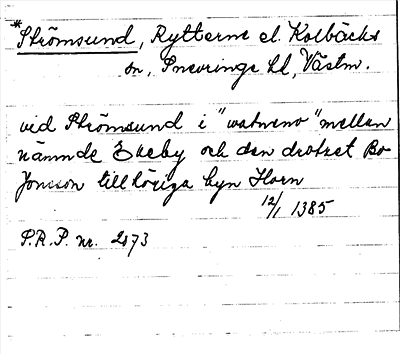 *Strömsund, Rytterne el. Kolbäcks
sn, Snevringe hd, Västm.
vid Strömsund i "watneno" mellan
nämnde Ekeby och den drotset Bo
Jonsson tillhöriga byn Horn
12/1 1385
S.R.P. nr. 2173